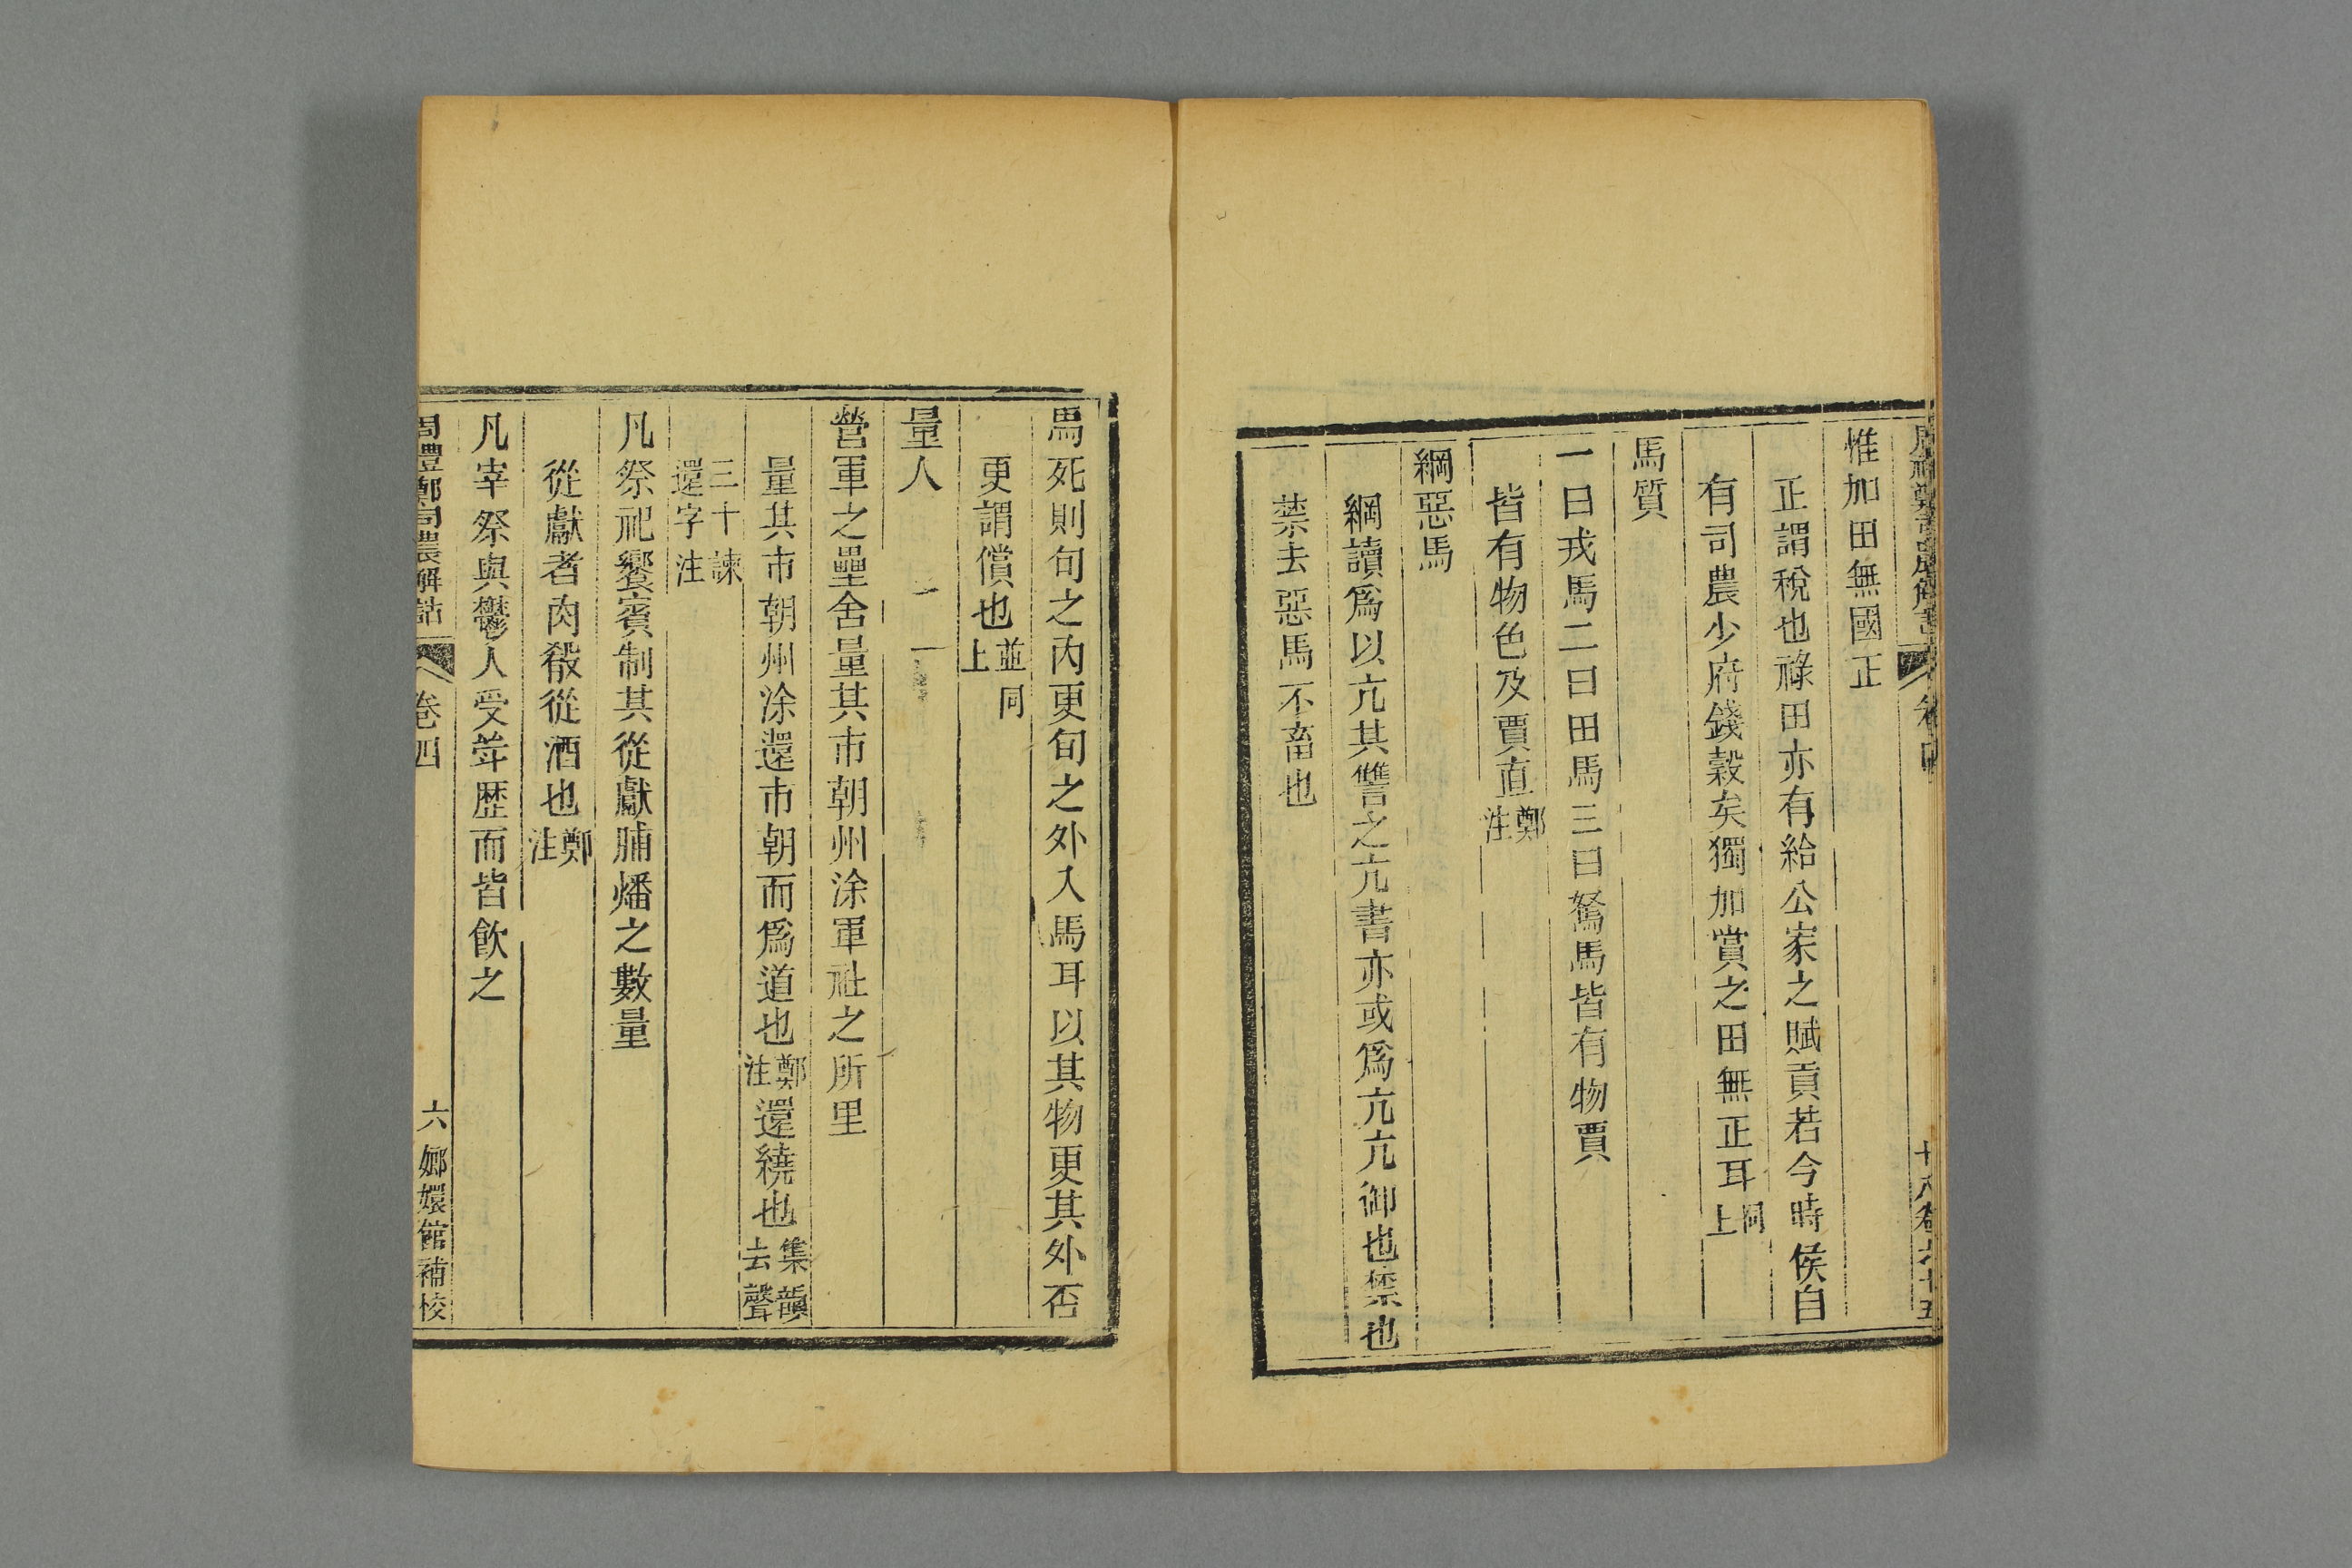 惟加田無國正
正謂稅也祿田亦有給公家之賦貢若今時侯自
有司農少府錢榖矣獨加賞之田無正耳同上
馬質
一曰戎馬二曰田馬三曰駑馬皆有物賈
皆有物色及賈直鄭注
綱惡馬
綱讀爲以亢其讐之亢書亦或爲亢亢御也禁也
禁去惡馬不畜也
馬死則旬之内更旬之外入馬耳以其物更其外否
更謂償也並同上
量人
營軍之壘舍量其市朝州涂軍社之所里
量其市朝州涂還市朝而爲道也鄭注還繞也集韻去聲
三十諫還字注
凡祭祀饗賓制其從獻脯燔之數量
從獻者肉殽從酒也鄭注
凡宰祭與鬱人受斝歷而皆飲之
周禮鄭司農解詁 卷四 六 嫏嬛館補校